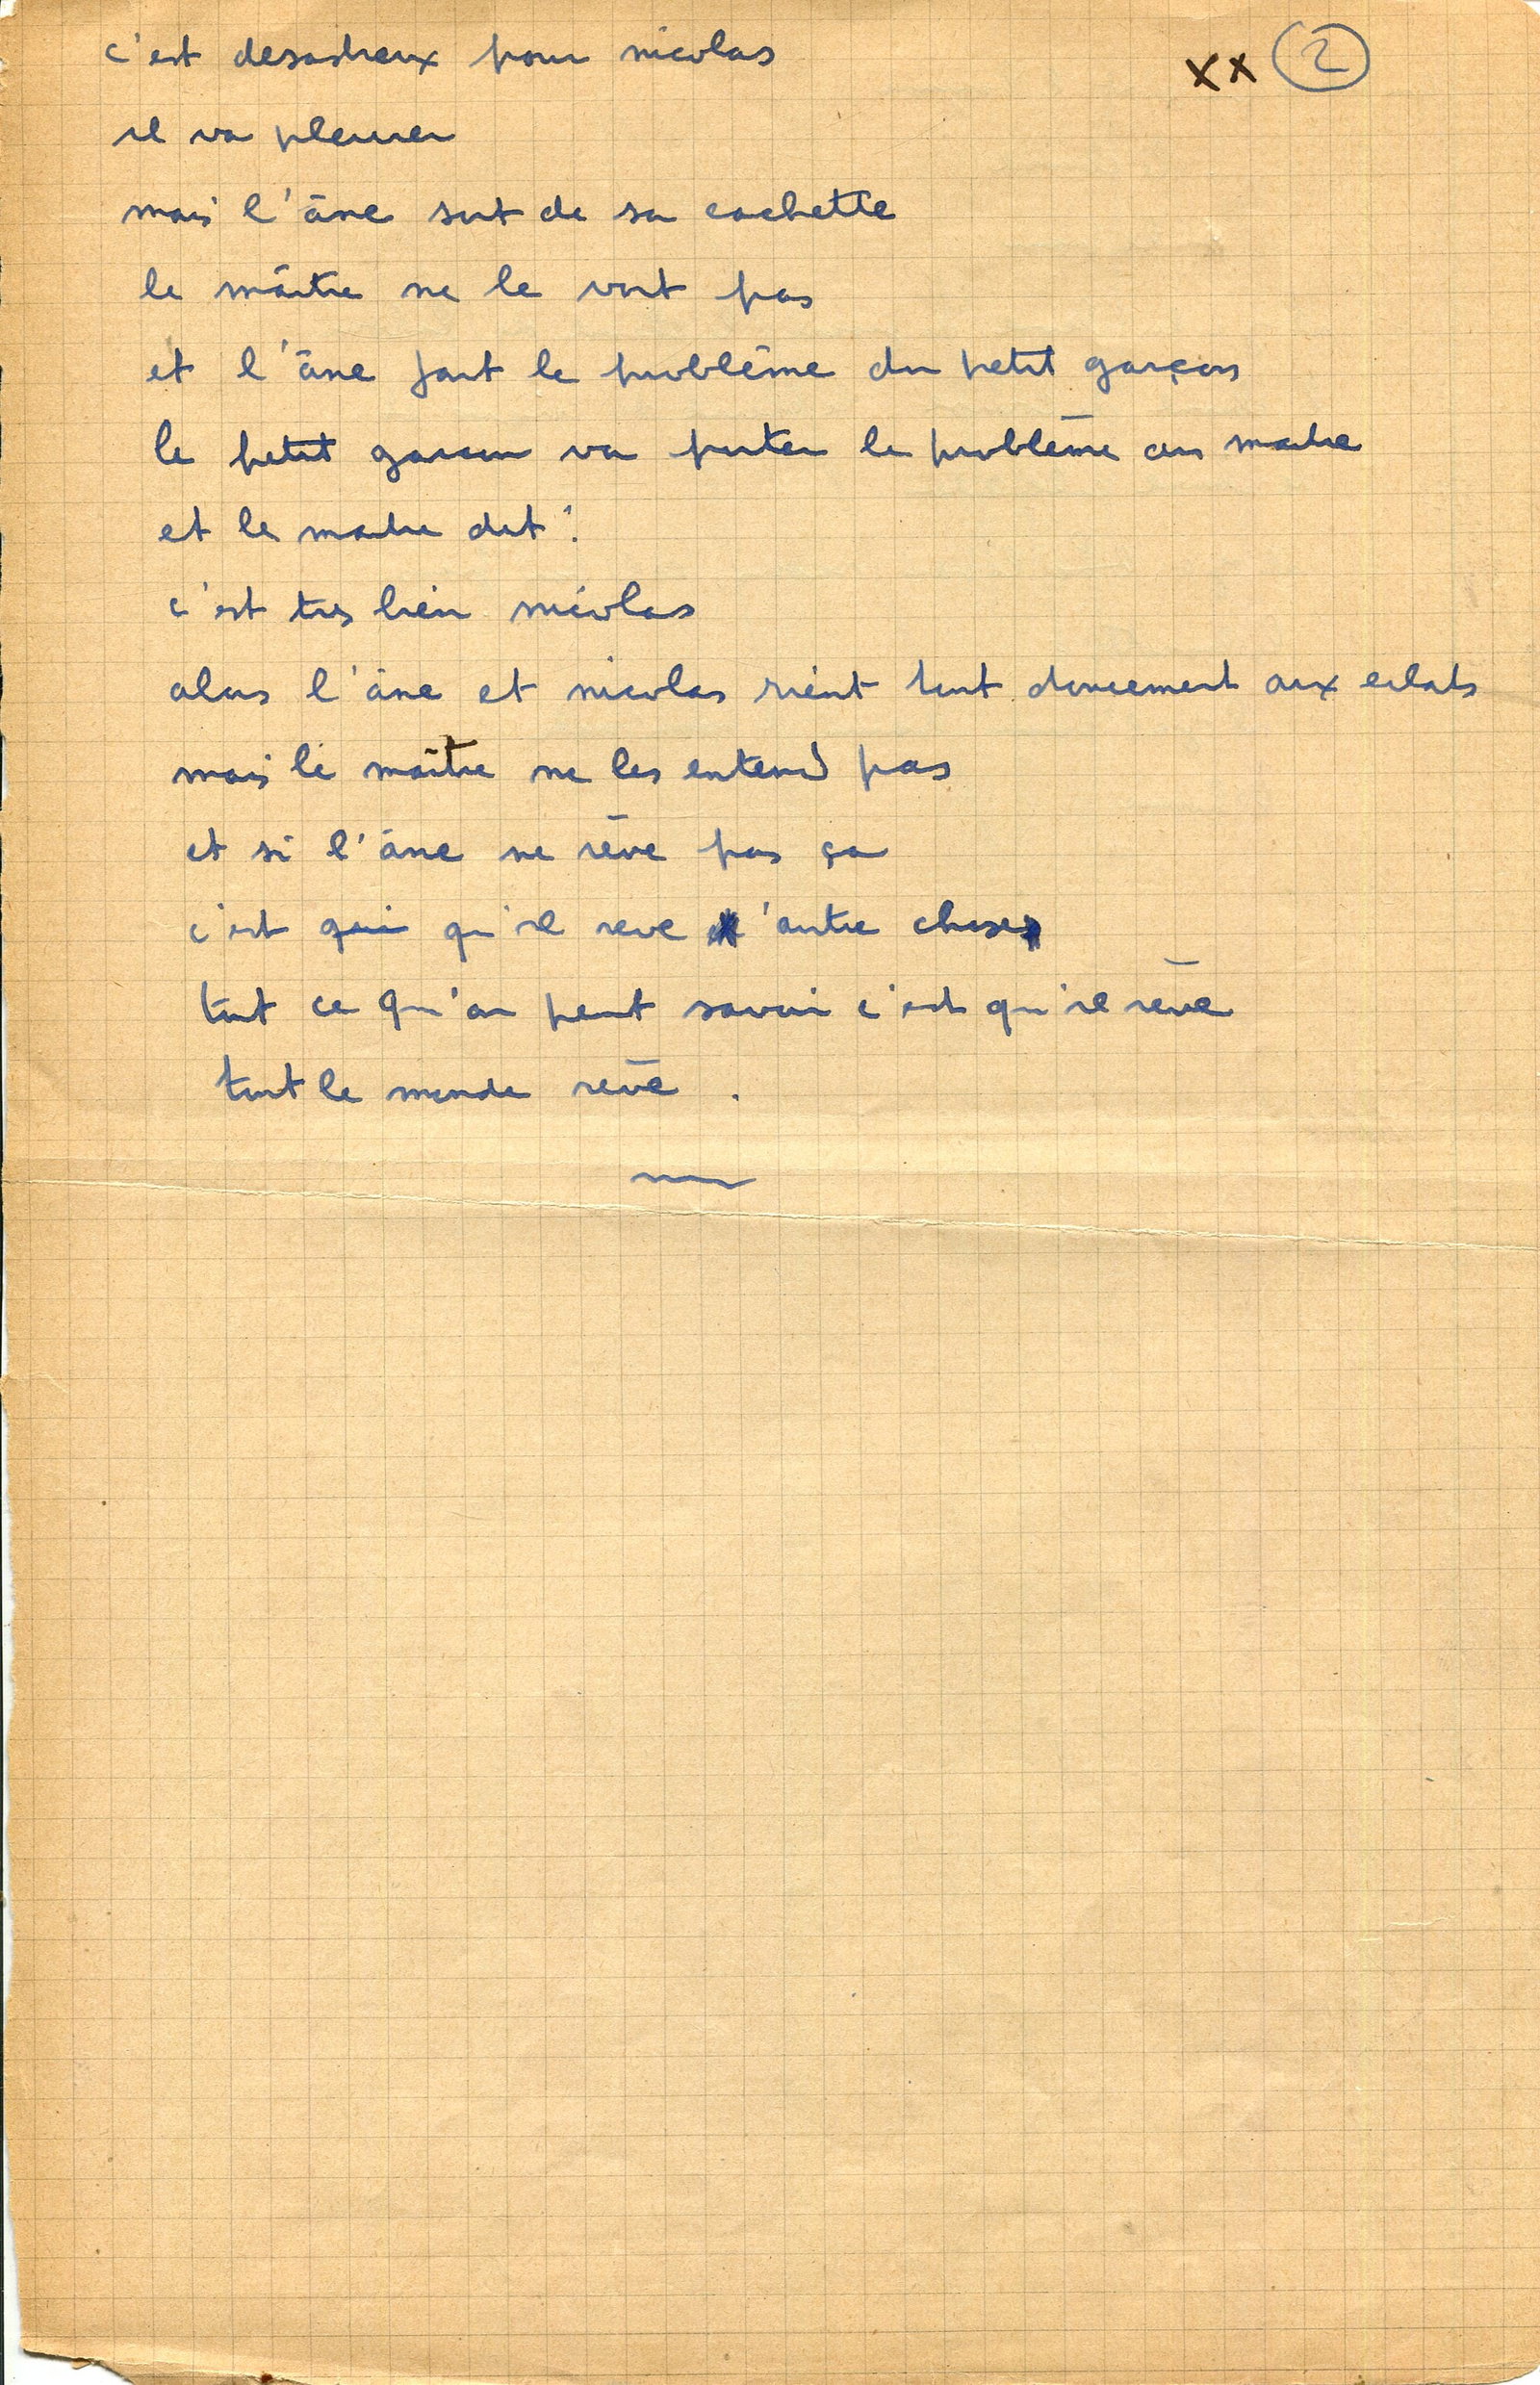 xx 2
c'est desastreux pour nicolas
il va pleurer
mais l'âne sort de sa cachette
le maître ne le voit pas
et l'âne fait le problême du petit garçon
le petit garcon va porter le problême au maitre
et le maitre dit :
c'est tres bien nicolas
alors l'âne et nicolas rient tout doucement aux eclats
mais le maître ne les entend pas
et si l'âne ne rêve pas ça
c'est qui qu'il reve d'autre chose
tout ce qu'on peut savoir c'est qu'il rêve
tout le monde rêve .